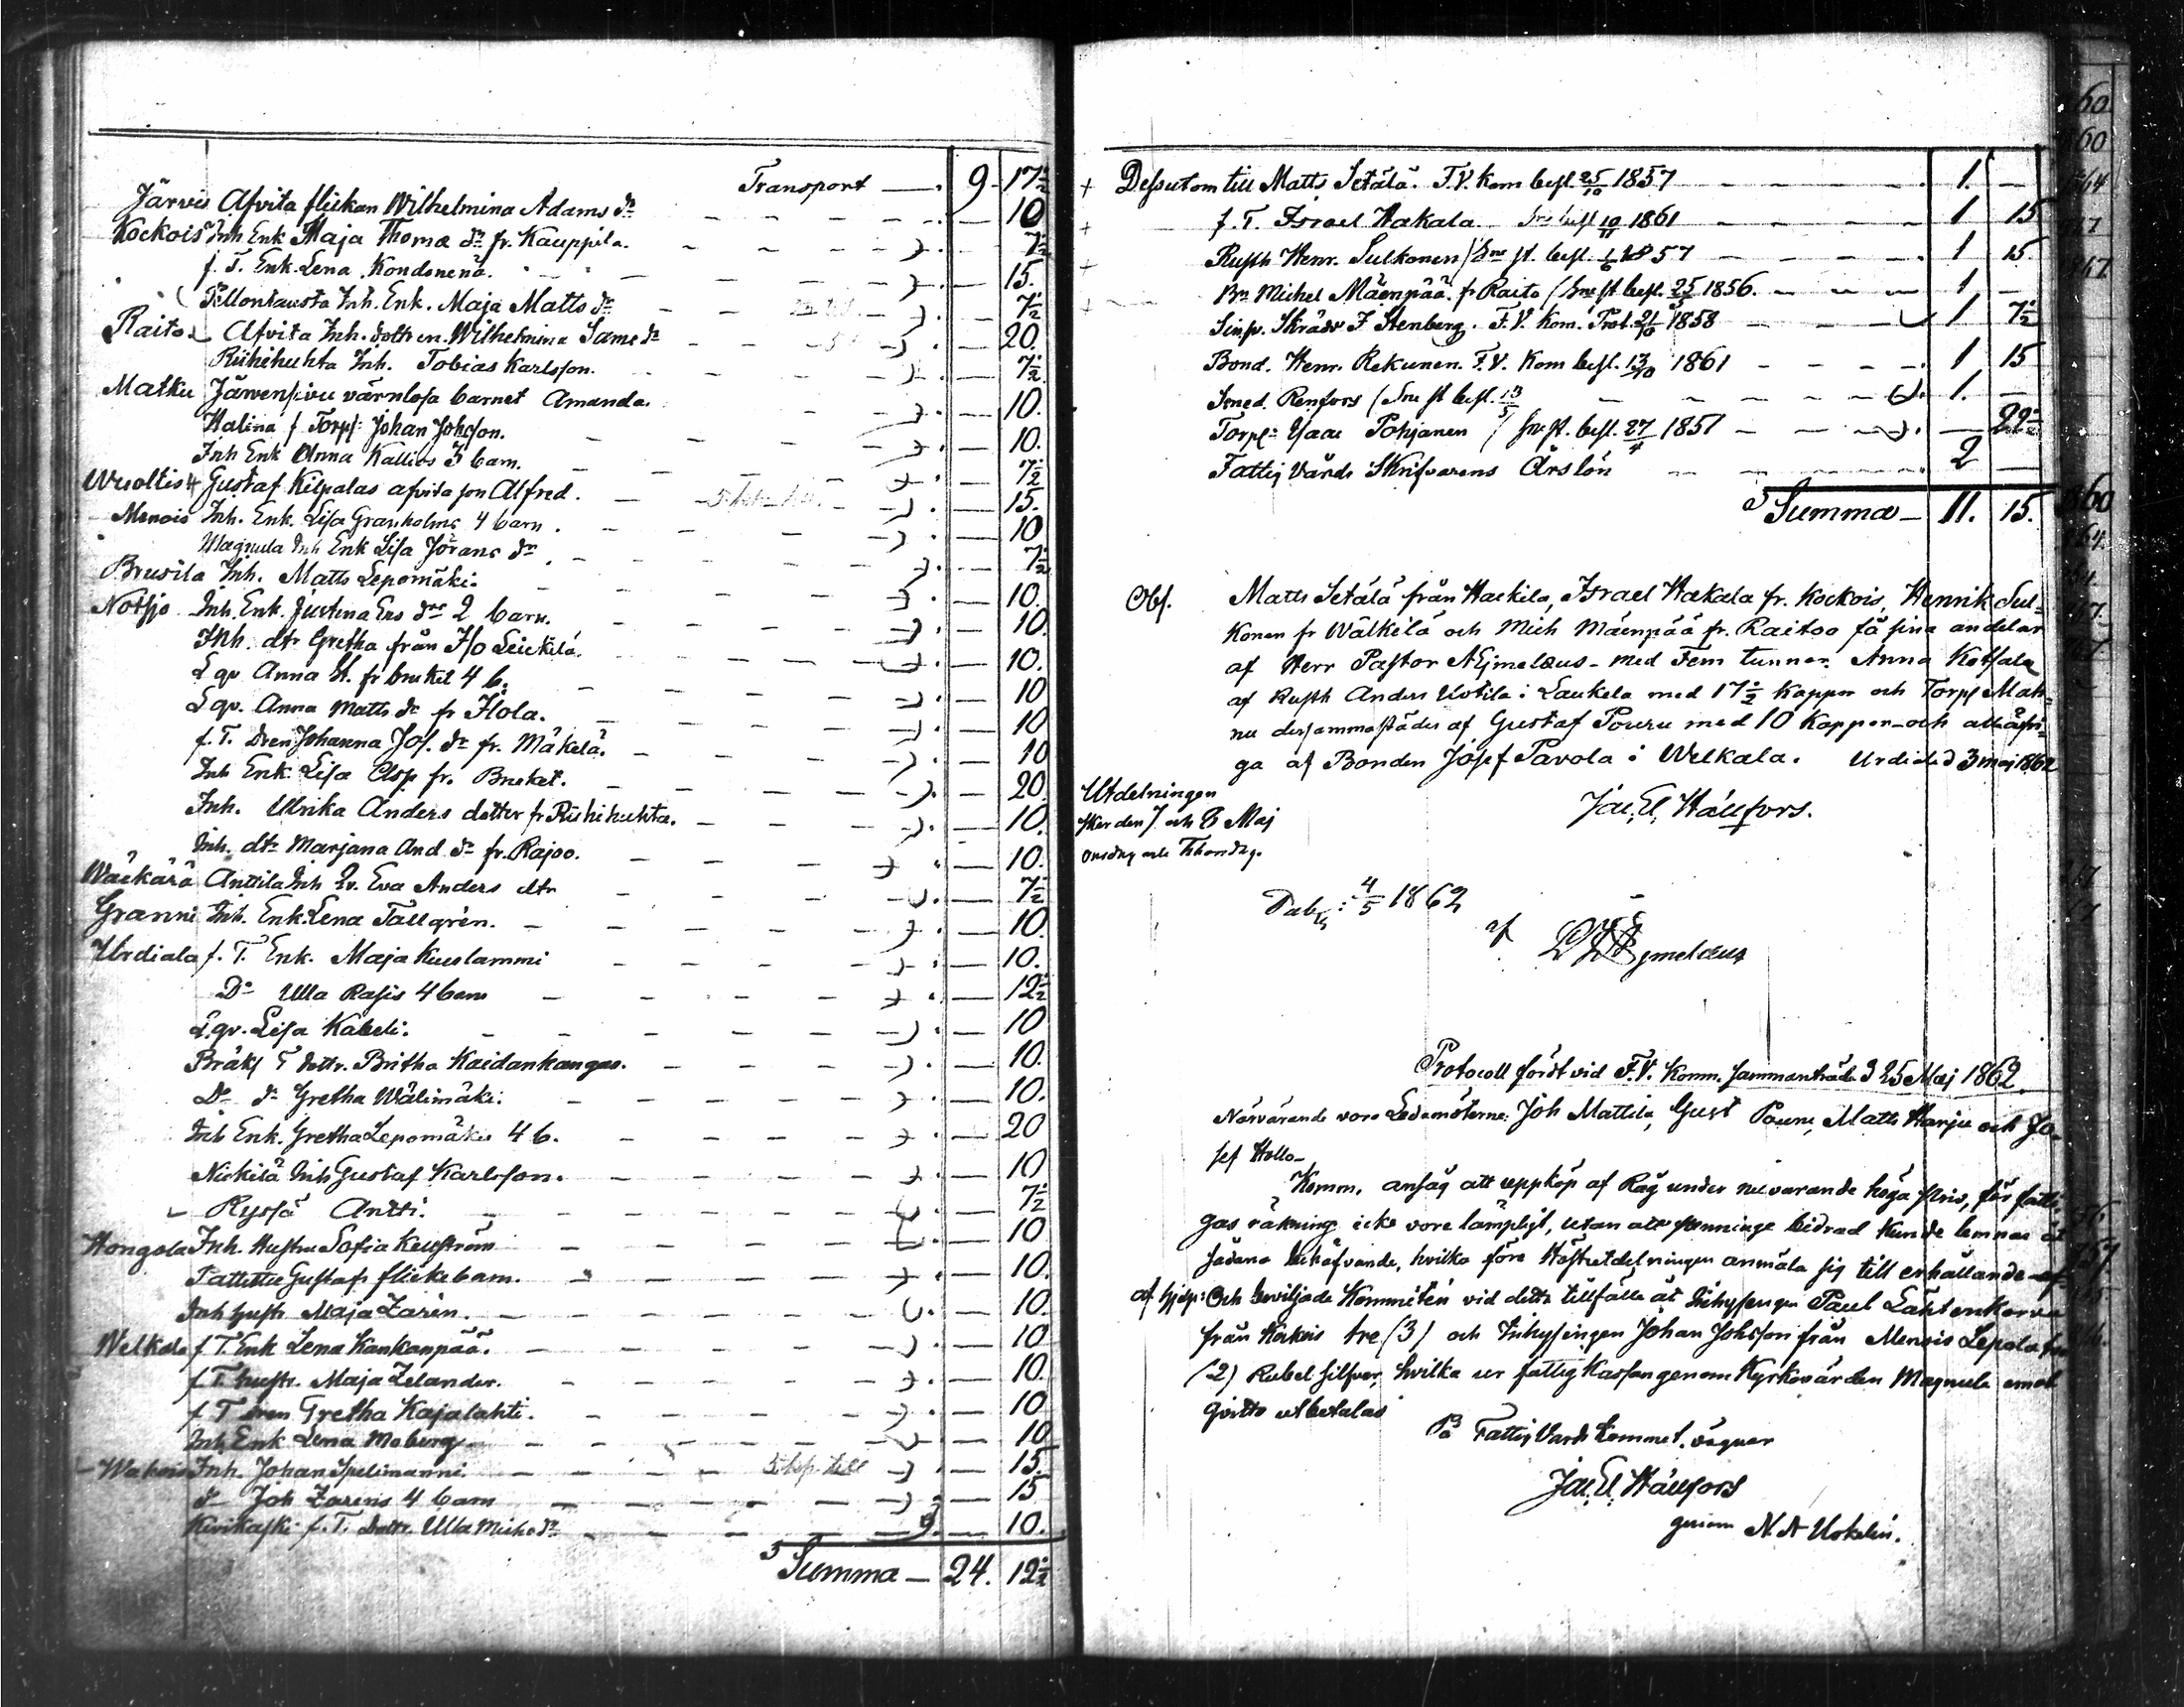 Transport — 9 17½
Järvis Afvita flickan Wilhelmina Adams dr — 10
Kockois Inh Enk Maja Thomæ dr fr. Kauppila. — 7½
f. T. Enk. Lena Kondonenä. — 15.
Pällontausta Inh. Enk. Maja Matts dr — 7½
Raito Afvita Inh. dottren Wilhelmina Sams dr — 20.
Riihihuhta Inh. Tobias Karlsson. — 7½
Matku Järvensivu värnlosa barnet Amanda. — 10.
Halina f. Torp: Johan Johsson. — 10.
Inh Enk Anna Kallios 3 barn. — 7½
Wuoltis Gustaf Kilpalas afvita son Alfred. — 15.
Menois Inh. Enk. Lisa Granholms 4 barn. — 10
Magnula Inh Enk Lisa Jörans dr — 7½
Brusila Inh. Matts Lepomäki. — 10.
Notsjo Inh. Enk. Justina Ers drs 2 barn. — 10.
Inh. dtr Gretha från I/o Leickilä. — 10.
Lqv Anna H. fr bruket 4 b. — 10
Lqv. Anna Matts dr fr Ilola. — 10
f. T. Dren Johanna Jos. dr fr. Mäkelä. — 10
Inh Enk. Lisa Clsp fr. Bruket. — 20
Inh. Ulrika Anders dotter fr Riihihuhta. — 10.
Inh. dtr Marjana And dr fr. Rajoo. — 10.
Wäckärä Anttila Inh Qv. Eva Anders dtr — 7½
Granni Inh. Enk. Lena Tallgrén. — 10.
Urdiala f. T. Enk. Maja Kuuslammi — 10.
Do Ulla Rasis 4 barn — 12½
Lqv. Lisa Kabeli. — 10
Bräkl T dottr. Britha Kaidankangas. — 10.
Do dr Gretha Wälimäki. — 10.
Inh Enk. Gretha Lepomäkis 4 b. — 20
Nickilä Inh Gustaf Karlsson. — 10
Ryssä Antti. — 7½
Hongola Inh. Hustru Sofia Keuström — 10
Tattittu Gustafs flickebarn. — 10.
Inh hustr Maja Zarin. — 10
Welkala f T. Enk Lena Kankanpää. — 10
f T. hustr. Maja Zelander. — 10.
f. T dren Gretha Kajalahti. — 10
Inh Enk Lena Moberg — 10
Wakois Inh. Johan Spelimanni. — 15.
dr Joh Zarens 4 barn — 15
Kivikaski f. T. Dottr. Ulla Michs dr — 10.
Summa — 24. 12½
Dessutom till Matts Setälä. F.V. Kom besl. 25/10 1857 — 1. —
f. T. Israel Hakala. Sme besl 10/11 1861 — 1 15
Rusth Henr. Sulkonen / Sme st. besl. 1/6 1857 — 1 15.
Bn Michel Mäenpää. fr Raito / Sme st besl. 25/5 1856. — 1 —
Sinp. Skrädr F Stenberg. F.V. Kom. Prot. 21/10 1858 — 1 7½
Bond. Henr. Rekunen. F.V. Kom besl. 13/10 1861 — 1 15
Smed. Renfors / Sme st besl. 13/5 — 1. —
Torp: Isaac Pohjanen / Sme st. besl. 27/4 1851 — 22½
Fattig Vårds Skrifvarens Årslön — 2 —
Summa — 11. 15.
Obs. Matts Setälä från Hackila, Israel Hakala fr. Kockois, Henrik Sul-
konen fr Wälkilä och Mich Mäenpää fr. Raitoo få sina andelar
af Herr Pastor Ajmelæus - med Fem tunnor. Anna Kotsala
af Rusth Anders Uotila i Laukela med 17½ Kappor och Torp Mah-
nu dersammastädes af Gustaf Pouru med 10 Kappor - och alla öfri-
ga af Bonden Josef Pavola i Welkala. Urdiala d 3 maj 1862
Jac. El. Hällfors.
Utdelningen
sker den 7 och 8 Maj
onsdag och Thorsdag.
Publ: 4/5 1862
af Ajmelæus
Protocoll fördt vid F.V. Komm. sammanträde d 25 Maj 1862.
Närvarande voro Ledamöterne: Joh Mattila, Gust Pouru, Matts Harju och Jo-
sef Hollo -
Komm. ansåg att uppköp af Råg under nuvarande höga pris, för fatti-
gas räkning icke vore lämpligt, utan att penninge bidrad kunde lemnas åt
sådana behöfvande, hvilka före Höstutdelningen anmäla sig till erhållande af
af hjelp: Och beviljade Kommitén vid detta tillfälle åt Inhysingen Paul Lähtenkorva
från Kokois tre (3) och Inhysingen Johan Johsson från Menois Lepola två
(2) Rubel silfver, hvilka ur fattig Kassan genom Kyrkovärden Magnula emot
qvitto utbetalas
På Fattig Vards Kommet. vägnar
Jac. El. Hällfors
genom N. A Uskelin.